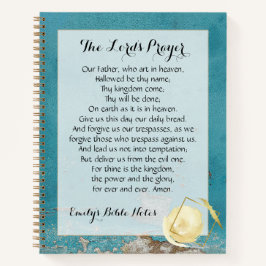 The Lords Prayer
Our Father, who art in heaven,
Hallowed be thy name;
Thy kingdom come;
Thy will be done;
On earth as it is in heaven.
Give us this day our daily bread.
And forgive us our trespasses, as we
forgive those who trespass against us.
And lead us not into temptation;
But deliver us from the evil one.
For thine is the kingdom,
the power and the glory,
for ever and ever. Amen.
Emily's Bible Notes